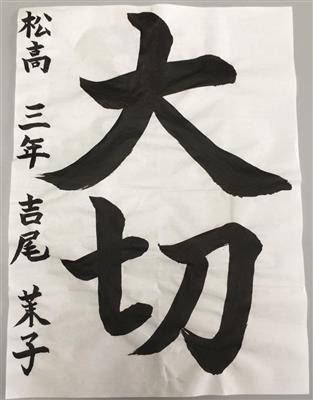 大切
松高 三年 吉尾 茉子